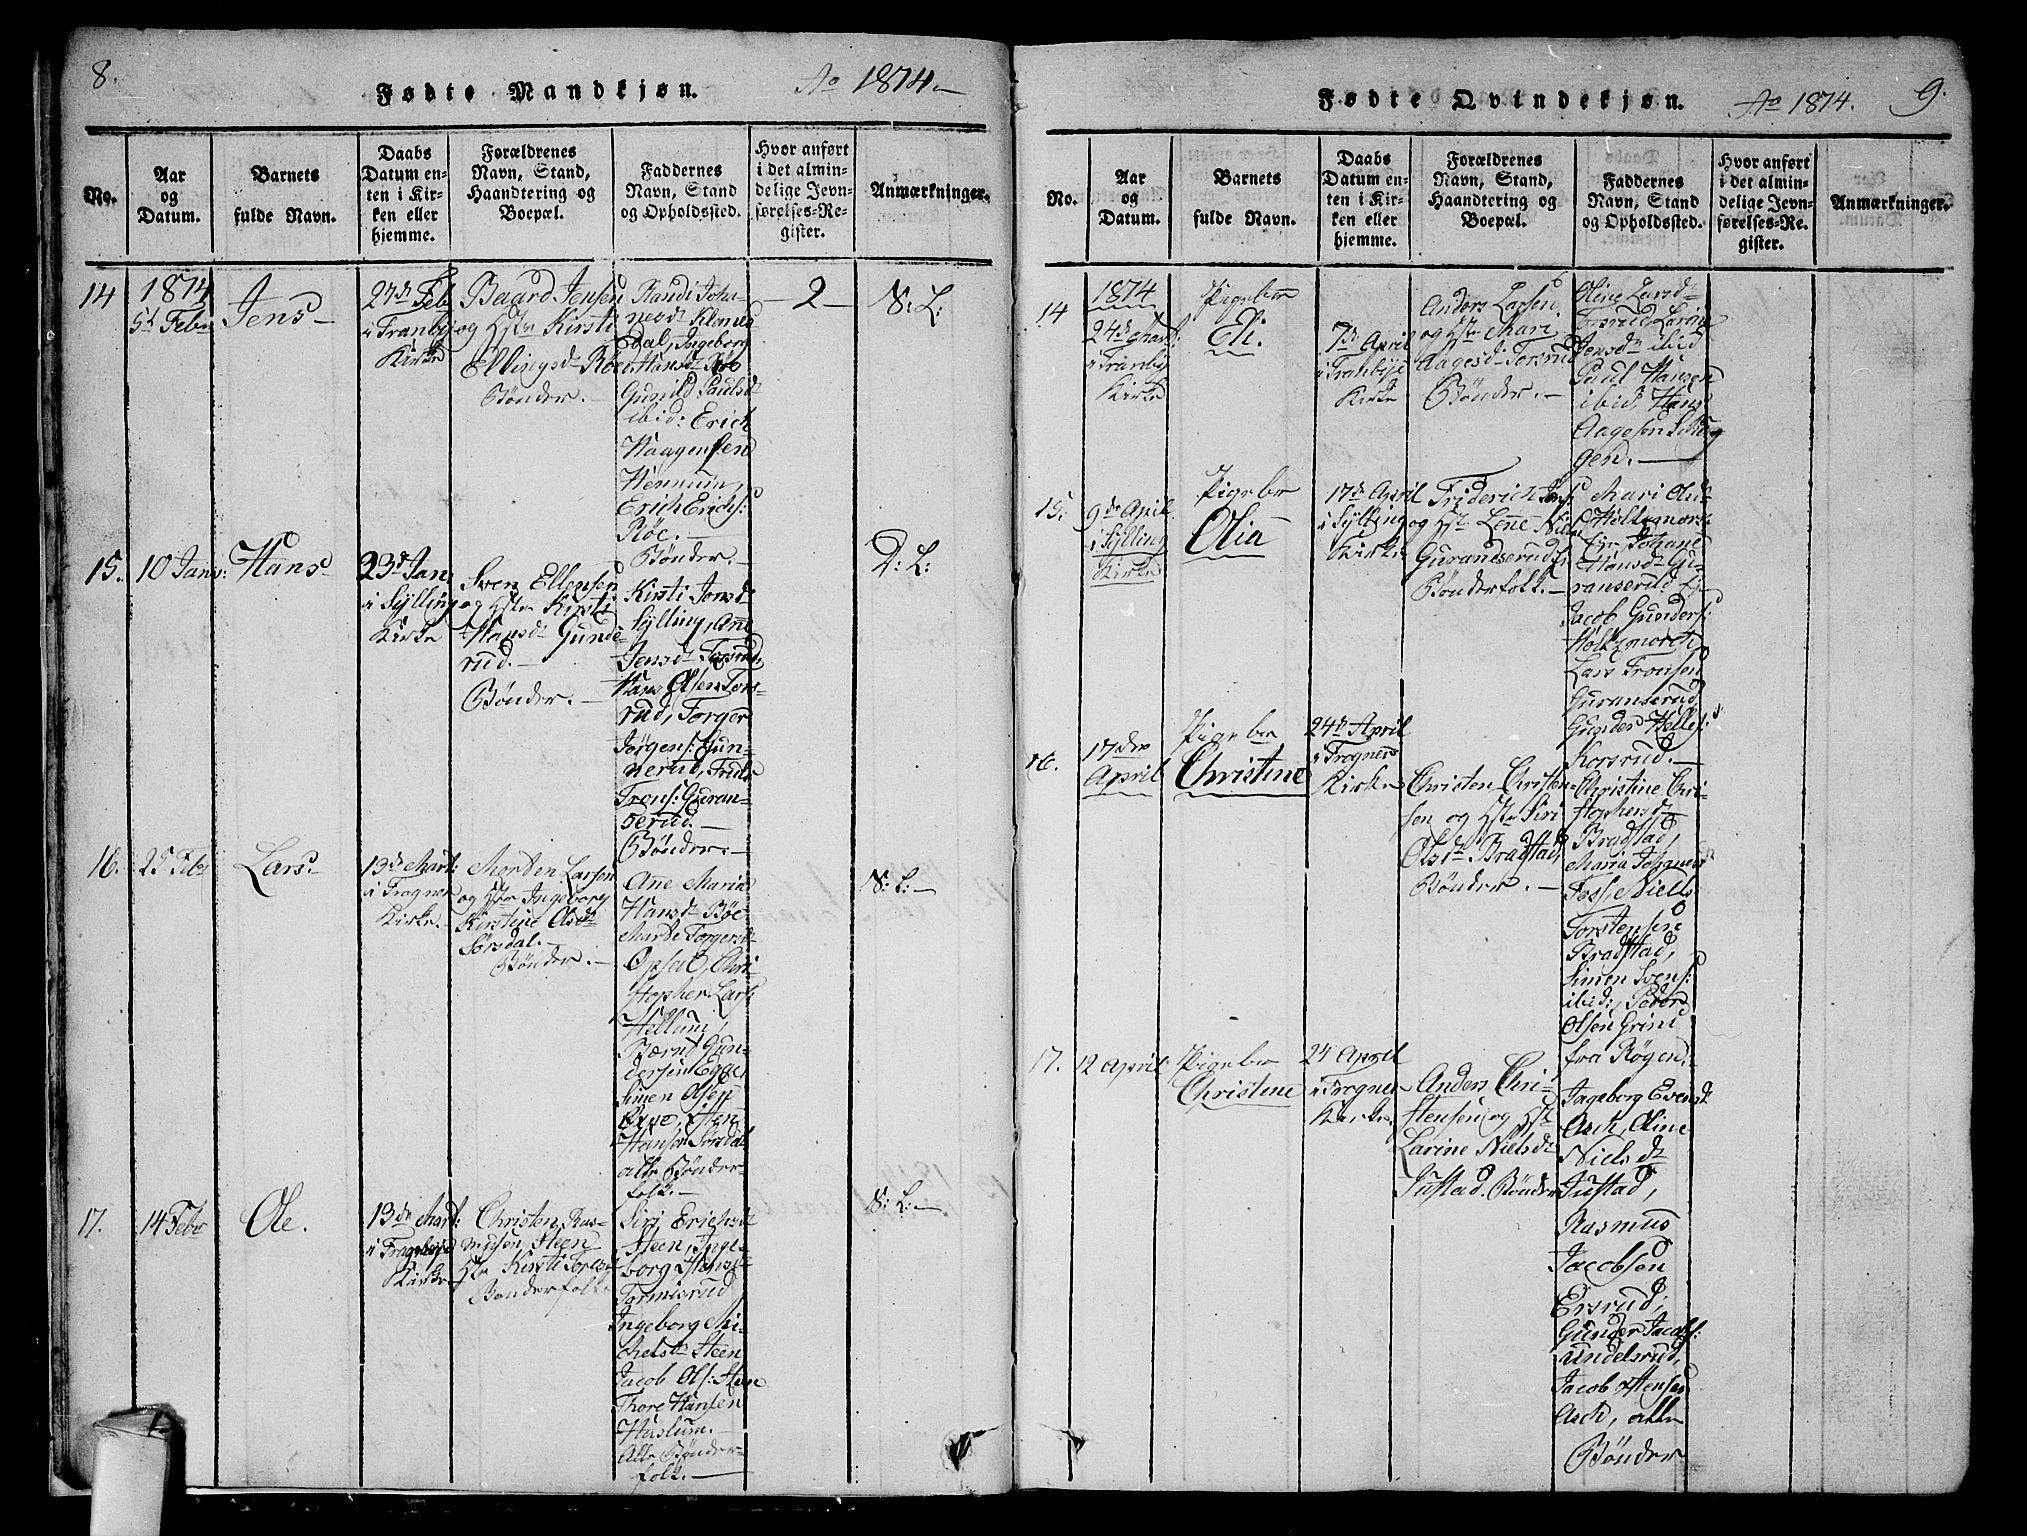 8.
Fødte Mandkjøn.
Ao 1814.
No.
Aar
og
Datum.
Barnets
fulde Navn.
Daabs
Datum en-
ten i Kir-
ken eller
hjemme.
Forældrenes
Navn, Stand,
Haandtering og
Boepæl.
Faddernes
Navn, Stand
og Opholdssted.
Hvor anført
i det almin-
delige Jevn-
førelses-Re-
gister.
Anmærkninger.
14
1814
5d Febr
Jens
27de Feb
i Tranby
Kirke
Baard Jensen
og Hstr Kirsti
Ellingsd Røe
Bønder.
Randi Joha-
Dal, Ingeborg
Hansd Røe
Gunild Paulsd
ibid: Erich
Haagensen
Hennum,
Erich Erichs:
Røe.
Bønder.
2
N: L:
15.
10 Jan:
Hans
23d Jan
i Sylling
Kirke
Sven Ellensen
og Hstr Kirsti
Hansd Gunde-
rud.
Bønder.
Kirsti Jonsd
Sylling, Ane
Jensd Torsrud,
Hans Olsen Tors-
rud, Torger
Jørgens: Gun-
nerud,
Trons: Guran-
serud.
Bønder.
D: L:
16.
25 Feb
Lars.
13de Mart:
i Frogner
Kirke.
Morten Larsen
og Hstr Ingeborg
Kirstine Olsd
Sørsdal.
Bønder.
Ane Maria
Hansd Bøe
Marte Torgersd
Opsal, Chri-
stopher Lars:
Hellum,
Gun-
dersen Egge,
Simen Olsen
Hansen Sørsdal
alle Bønder-
folk.
N: L:
17.
14 Febr
Ole.
13de Mart:
i
Kirke
Christen Ras-
musen Steen
Hstr Kirsti
Bønderfolk
Siri Erichsd
Steen, Inge-
borg
Tormisrud
Ingeborg Mi-
chelsd Steen
Jacob Ols: Steen
Thore Hansen
Huslum.
Alle Bønder-
folk.
N: L:
Fødte Qvindekjøn.
Ao 1814.
9.
No.
Aar
og
Datum.
Barnets
fulde Navn.
Daabs
Datum en-
ten i Kir-
ken eller
hjemme.
Forældrenes
Navn, Stand,
Haandtering og
Boepæl.
Faddernes
Navn, Stand
og Opholdssted.
Hvor anført
i det almin-
delige Jevn-
førelses-Re-
gister.
Anmærkninger.
14
1814
24de Mart:
i Tranby
Kirke
Pigebn
Eli.
7de April
i Tranbye
Kirke
Anders Larsen
og Hstr Mari
Aagesd Torsrud
Bønder.
Oline Larsd
Torsrud, Larine
Jensd ibid
Poul Hansen
ibid, Hans
Aagesen
gen.
15.
9de April
i Sylling
Kirke
Pigebn
Olia
17de April
i Sylling
Kirke
Friderich
og Hstr Lene
Guranserud.
Bønderfolk.
Mari
Johane
Hansd Gu-
ranserud
Jacob Gunders:
Lars Tronsen
Guranserud
Gunder Helles:
Korsrud.
16.
17de
April
Pigebn
Christine
24de April
i Frogner
Kirke
Christen Christen-
sen og Hstr Siri
Olsd Bradstad,
Bønder.
Christine Chri-
stophersd
Bradstad,
Maria
Fosse, Niels
Torstensen
Bradstad,
Simen Svens:
ibid:, Peder
Olsen Grini
fra Røgen.
17.
12 April
Pigebn
Christine
24 April
i Frogner
Kirke
Anders Chri-
stensen og Hst
Larine Nielsd
Justad. Bønder
Ingeborg Evensd
Ask, Oline
Nielsd
Justad,
Rasmus
Jacobsen
Ersrud,
Gunder Jacobs:
Undelsrud,
Jacob
Ask, alle
Bønder